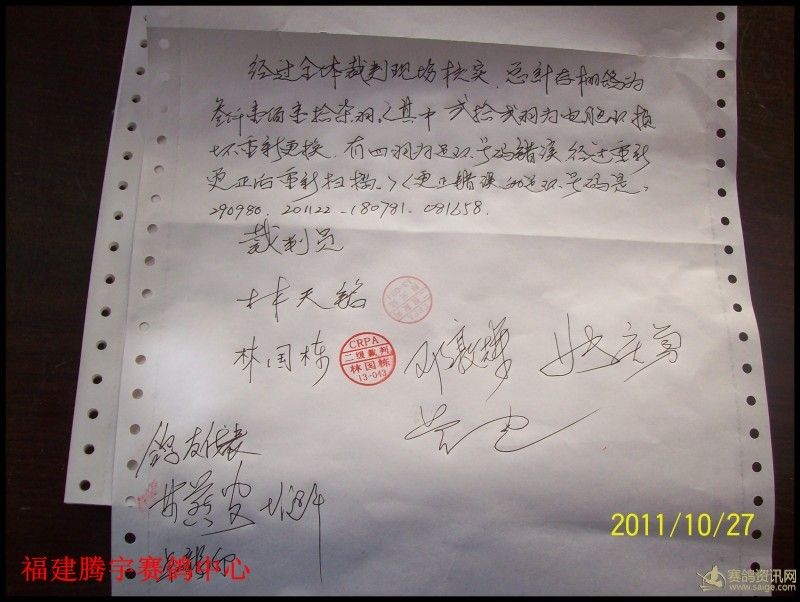 经过全体裁判现场核实,总计存棚鸽为
叁仟壹佰壹拾柒羽,其中贰拾贰羽为电脑环损
坏重新更换,有四羽为足环号码错误经过重新
更正后重新扫描。《更正错误的足环号码是:
290980.201122-180781.081658.
裁判员
林天铭
林国栋
CRPA
二级裁判
林国栋
13-043
鸽友代表
2011/10/27
福建腾宇赛鸽中心
赛鸽资讯网
www.saige.com